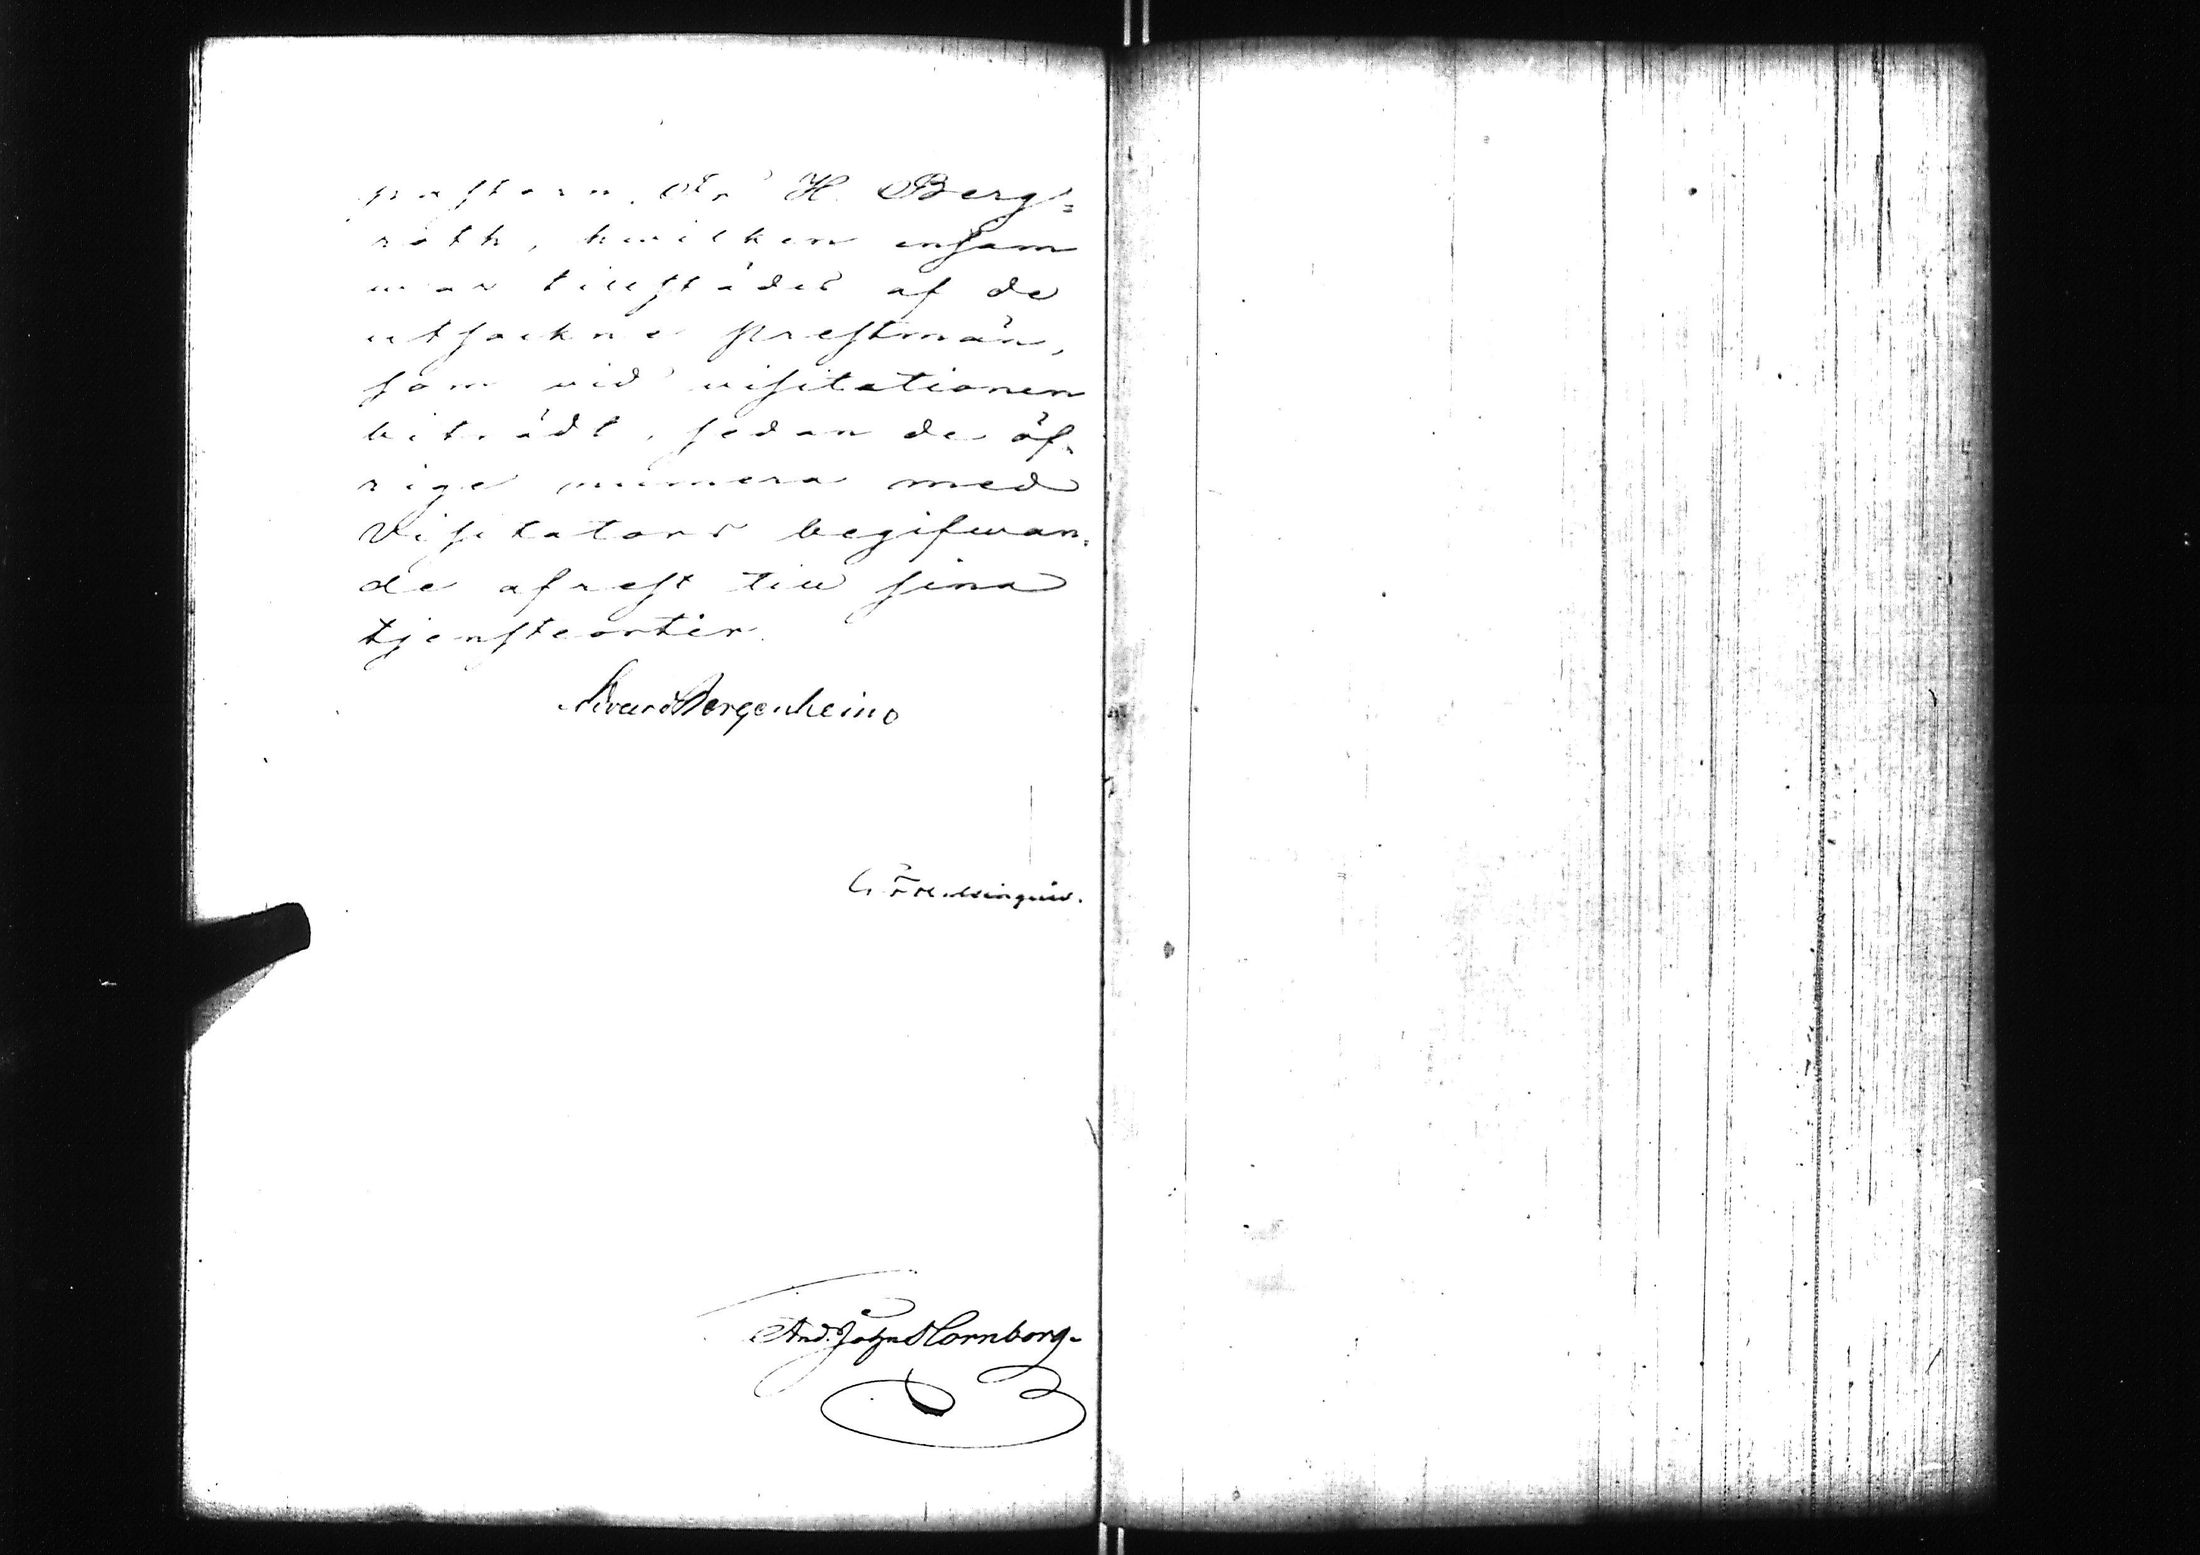 pastorn, Dr H. Berg=
roth, hwilken ensam
war tillstädes af de
utsockne prestmän,
som vid visitationen
biträdt, sedan de öf-
rige numera med
Visitators begifwan-
de afrest till sina
tjensteorter.
Edvard Bergenheim
And. John Hornborg.